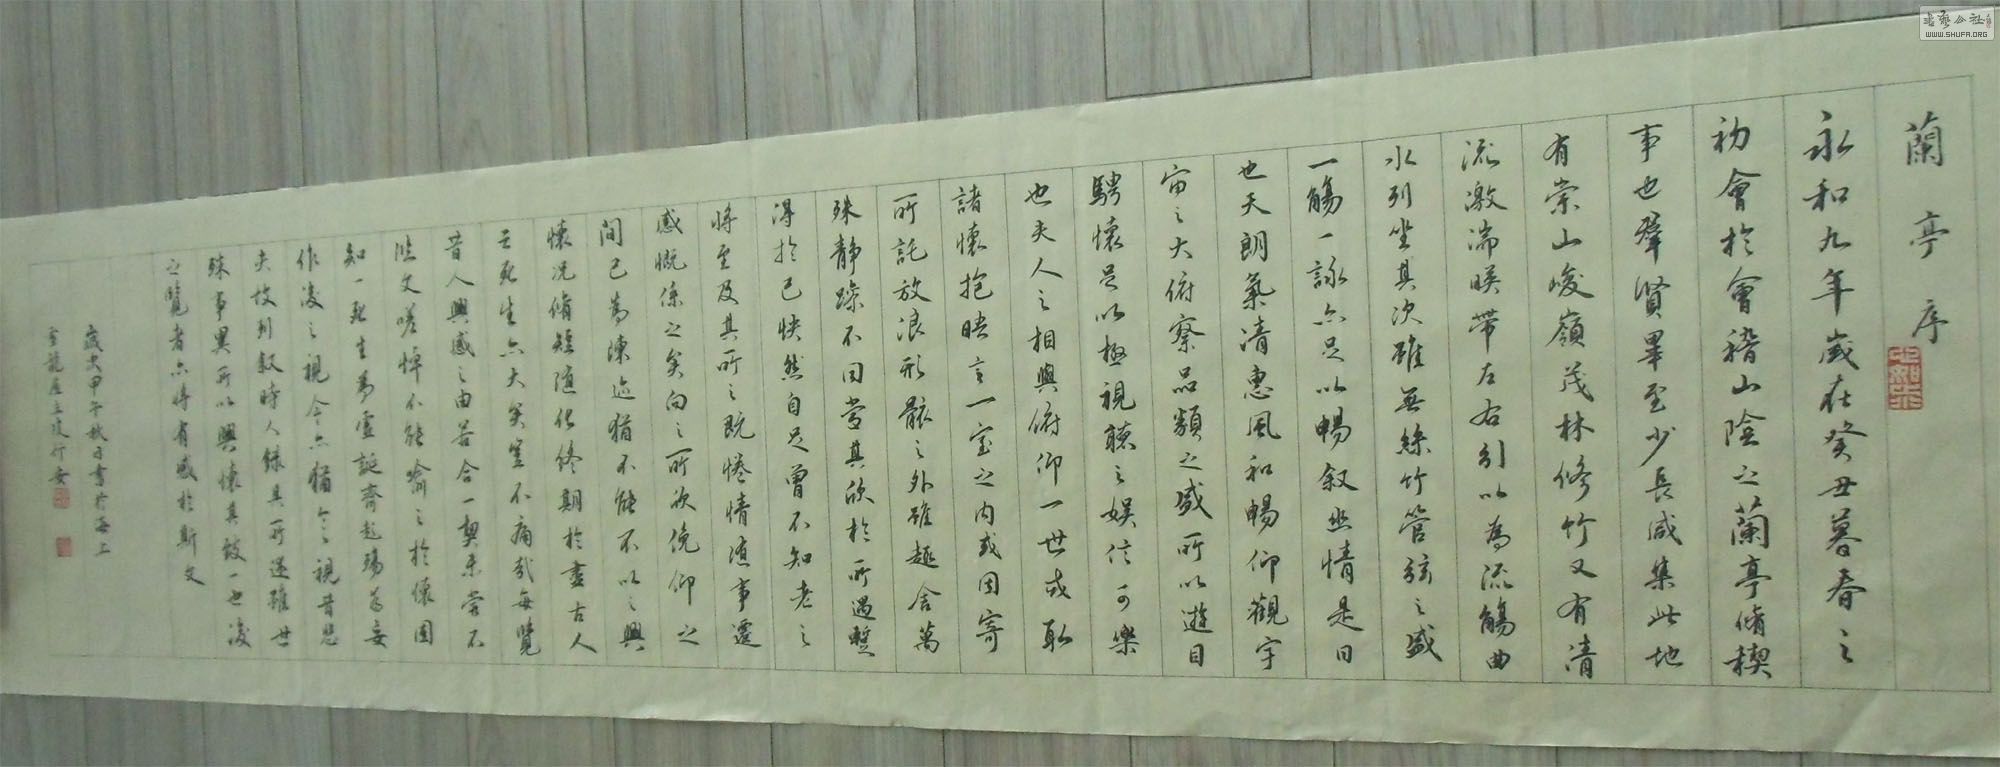 蘭亭序
永和九年歲在癸丑暮春之
初會於會稽山陰之蘭亭脩稧
事也羣賢畢至少長咸集此地
有崇山峻嶺茂林修竹又有清
流激湍暎帶左右引以為流觴曲
水列坐其次雖無絲竹管弦之盛
一觴一詠亦足以暢叙幽情是日
也天朗氣清惠風和暢仰觀宇
宙之大俯察品類之盛所以遊目
騁懷足以極視聽之娛信可樂
也夫人之相與俯仰一世或取
諸懷抱晤言一室之内或因寄
所託放浪形骸之外雖趣舍萬
殊靜躁不同當其欣於所遇暫
得於己快然自足曾不知老之
將至及其所之既惓情隨事遷
感慨係之矣向之所欣俛仰之
間已為陳迹猶不能不以之興
懷况脩短隨化終期於盡古人
云死生亦大矣豈不痛哉每覽
昔人興感之由若合一契未嘗不
臨文嗟悼不能喻之於懷固
知一死生為虛誕齊彭殤為妄
作後之視今亦猶今之視昔悲
夫故列叙時人錄其所述雖世
殊事異所以興懷其致一也後
之覽者亦將有感於斯文
歲次甲午秋日書於海上
書藝公社
WWW.SHUFA.ORG